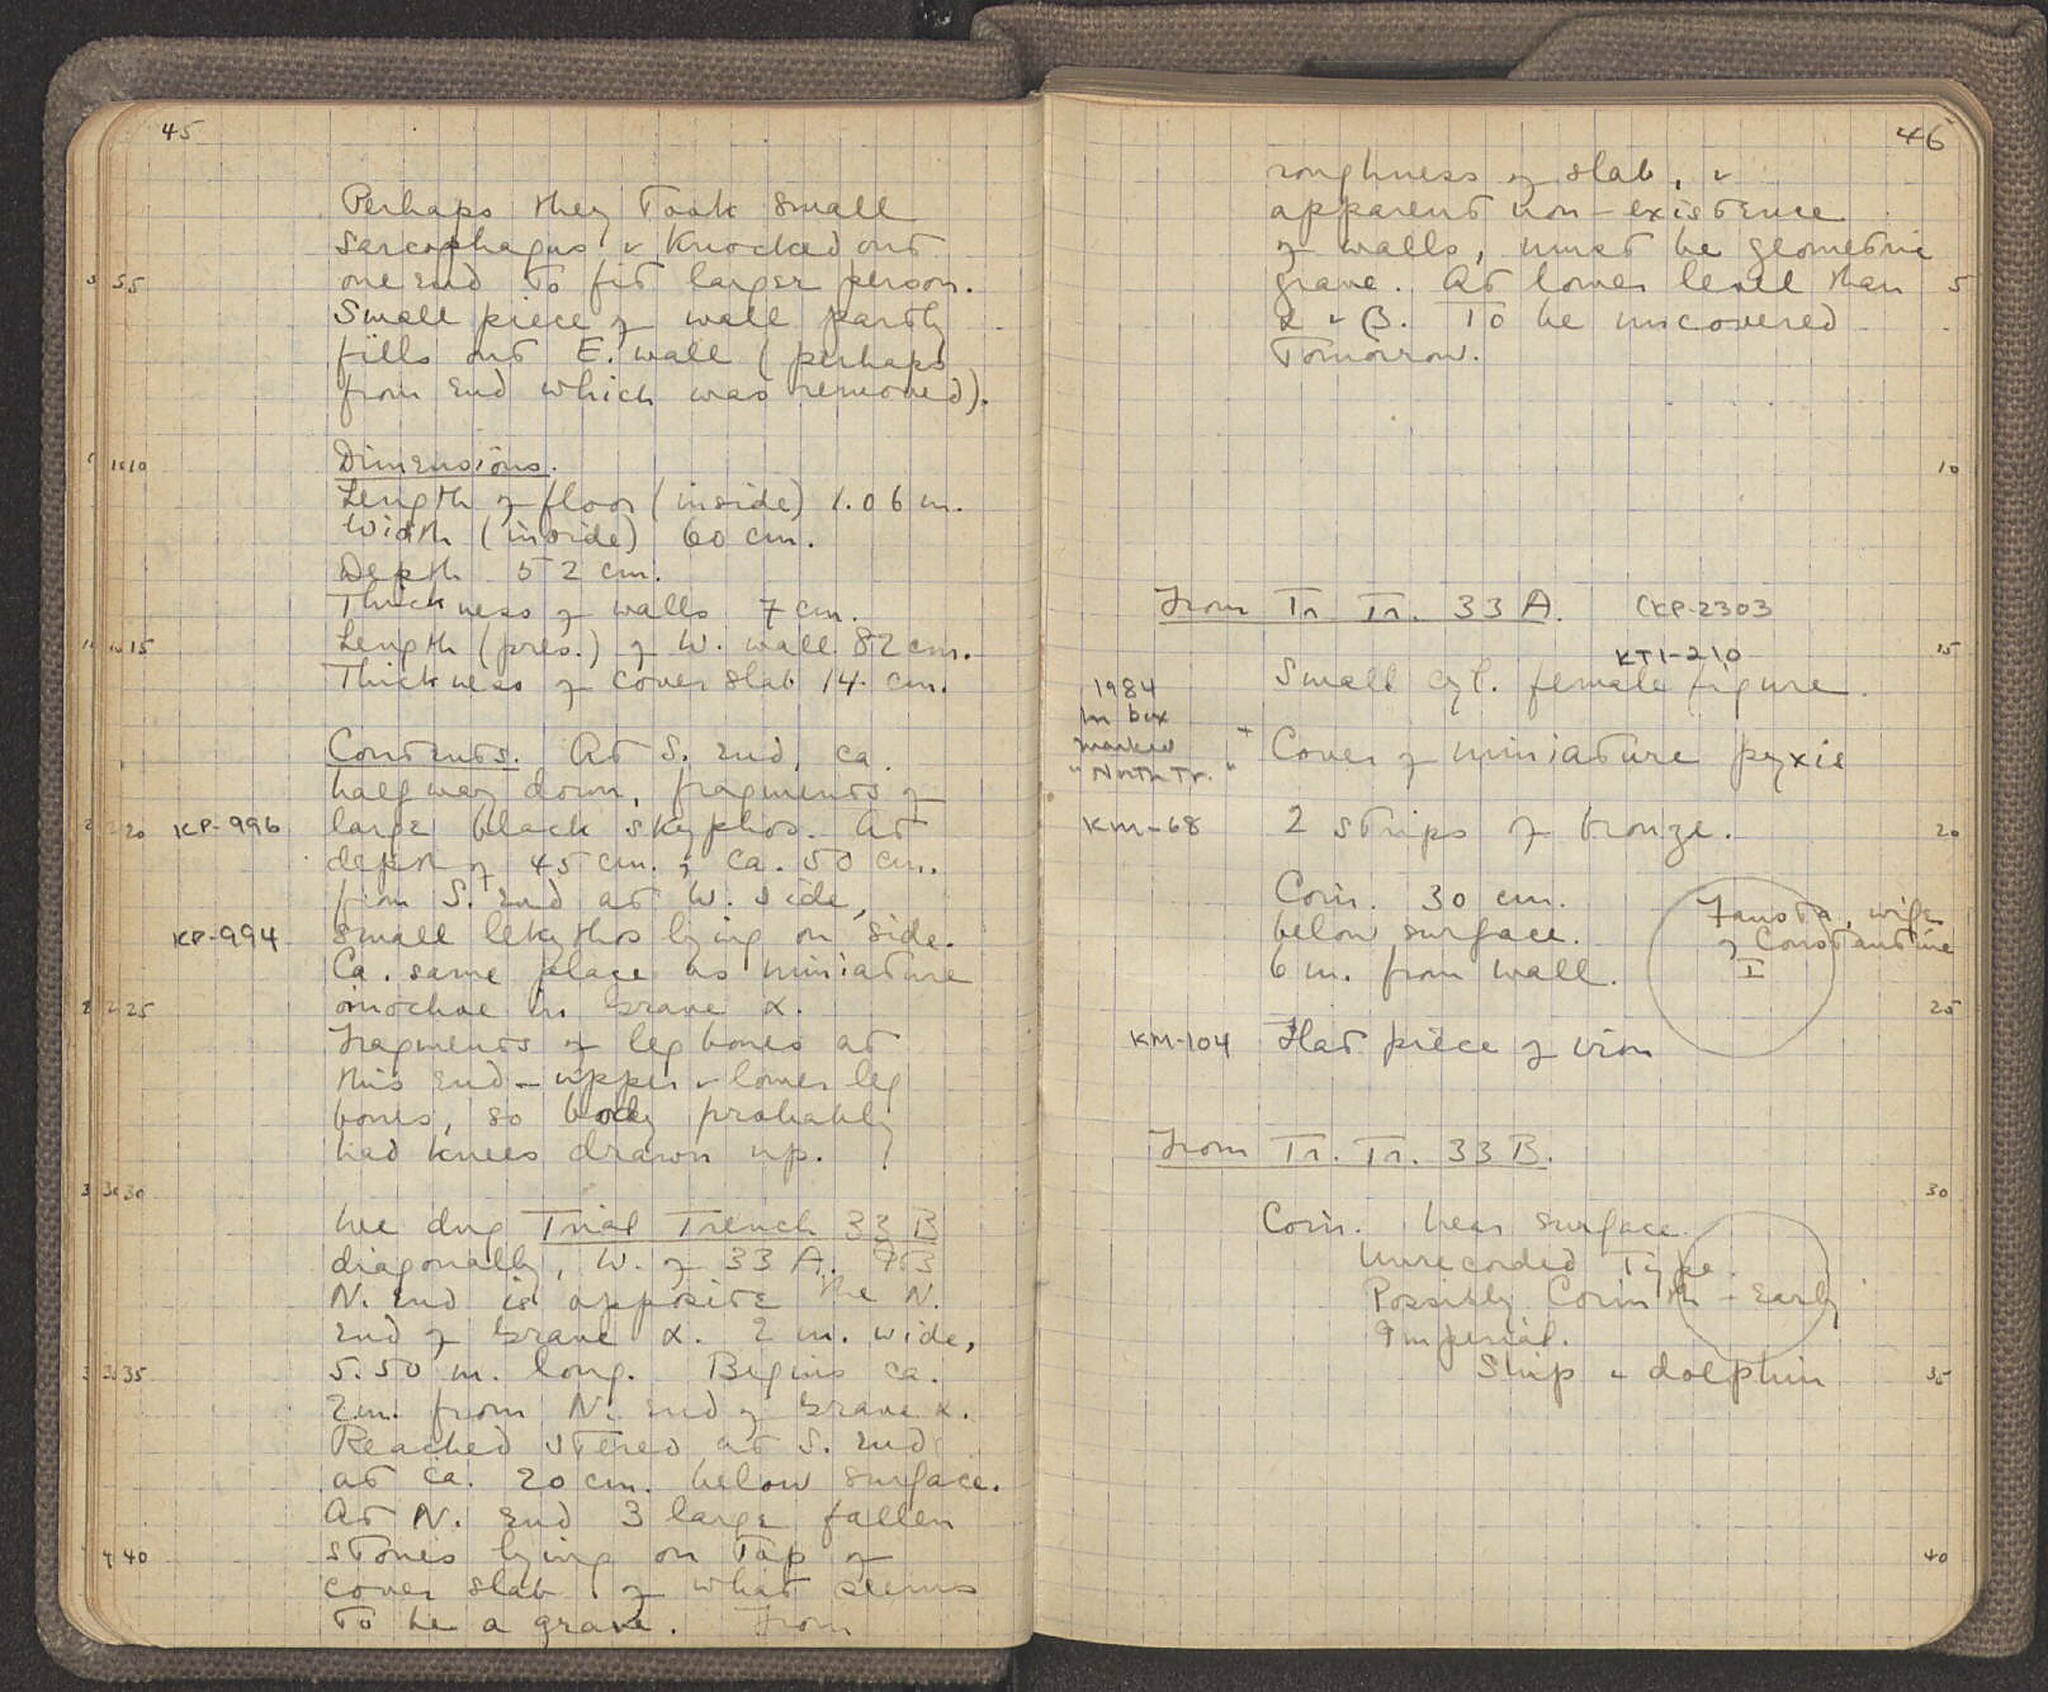 45
Perhaps they took small
sarcophagus & knocked out
one end to fit larger person.
5
Small piece of wall partly
fills out E. wall (perhaps
from end which was removed).
Dimensions.
10
Length of floor (inside) 1.06 m.
Width (inside) 60 cm.
Depth 52 cm.
Thickness of walls 7 cm.
15
Length (pres.) of W. wall 82 cm.
Thickness of cover slab 14 cm.
Contents. At S. end, ca.
halfway down, fragments of
20 KP-996 large black skyphos. At
depth of 45 cm., ca. 50 cm.
from S. end at W. side,
KP-994 small lekythos lying on side.
Ca. same place as miniature
25 oinochoe in Grave α.
Fragments of leg bones at
this end – upper & lower leg
bones, so body probably
had knees drawn up. ?
30
We dug Trial Trench 33 B
diagonally, W. of 33 A. Its
N. end is opposite the N.
end of Grave α. 2 m. wide,
35 5.50 m. long. Begins ca.
2 m. from N. end of Grave α.
Reached stereo at S. end
at ca. 20 cm. below surface.
At N. end 3 large fallen
40 stones lying on top of
cover slab of what seems
to be a grave. From
46
roughness of slab, &
apparent non-existence
of walls, must be geometric
grave. At lower level than 5
α & β. To be uncovered
tomorrow.
10
From Tr. Tr. 33 A. CKP-2303
KT1-210 15
Small cyl. female figure.
1984
In box
marked
"North Tr."
+ Cover of miniature pyxis
KM-68 2 strips of bronze. 20
Coin. 30 cm.
below surface.
6 m. from wall.
Fausta, wife
of Constantine
I
25
KM-104 Flat piece of iron
From Tr. Tr. 33 B.
30
Coin. Near surface.
Unrecorded Type.
Possibly Corinth – Early
Imperial.
Ship & dolphin 35
40